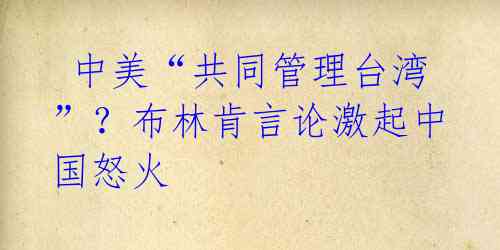 中美“共同管理台湾
”？布林肯言论激起中
国怒火